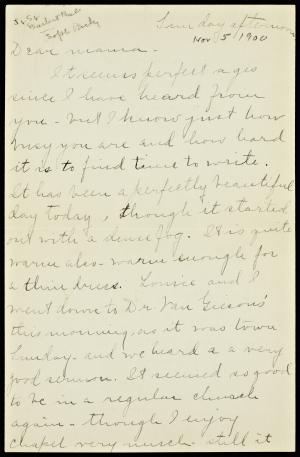 Sunday afternoon
Nov 5 1900
Dear mama -
It seems perfect ages
since I have heard from
you - but I know just how
busy you are and how hard
it is to find time to write.
It has been a perfectly beautiful
day today, though it started
out with a dense fog. It is quite
warm also - warm enough for
a thin dress. Louise and I
went down to Dr. Van Gieson's
this morning, as it was town
Sunday - and we heard a very
good sermon. It seemed so good
to be in a regular church
again - though I enjoy
chapel very much - still it